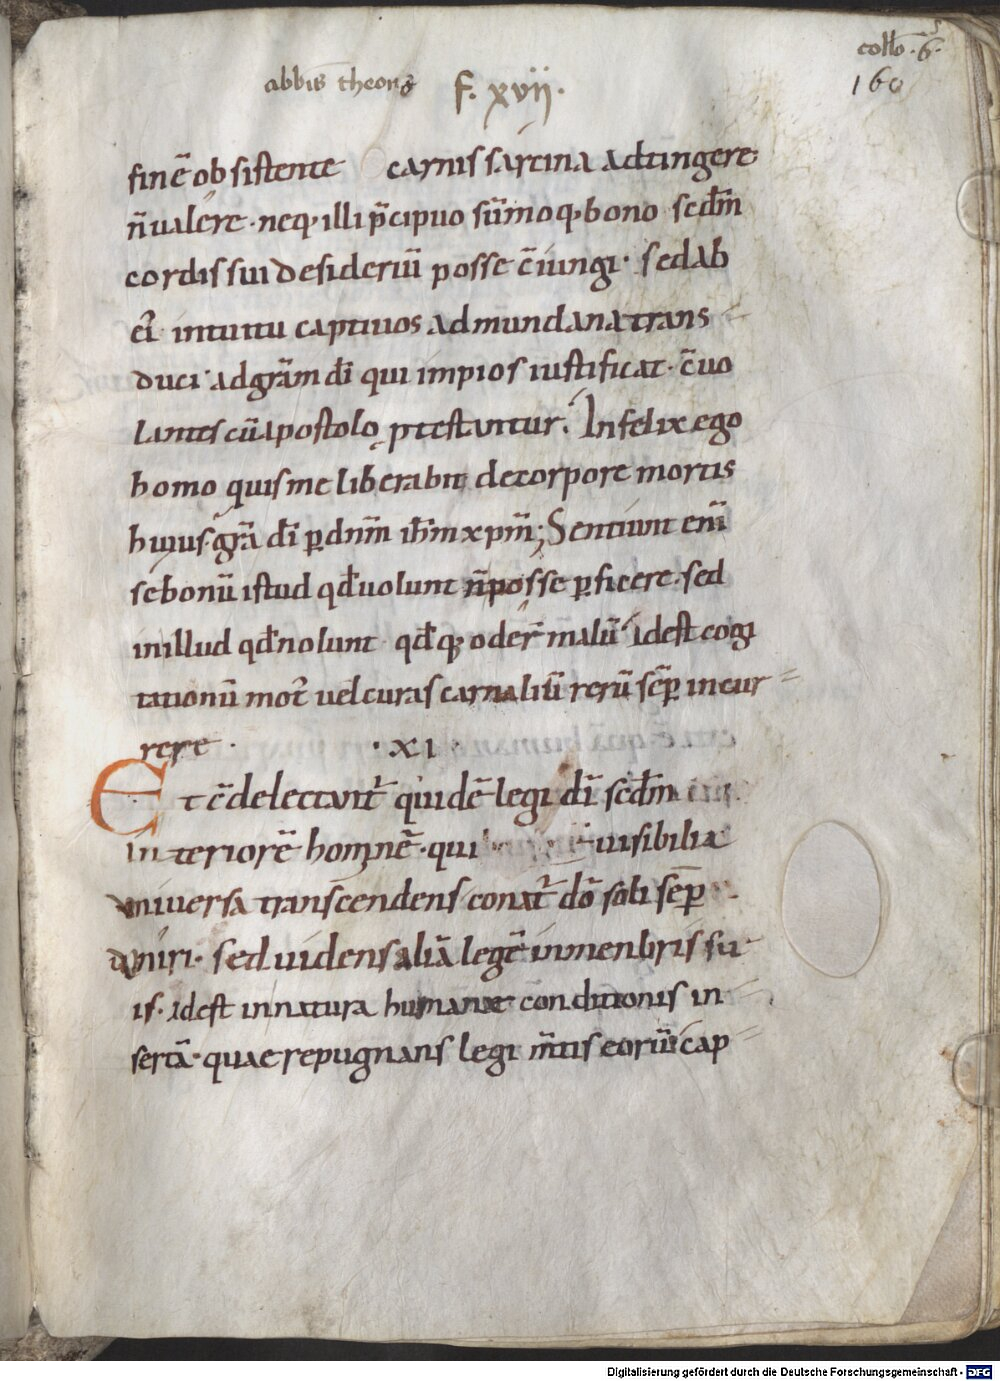 abbis theonis f. xvij. collo. 6.
160
finē obsistente carnis sarcina adtingere
n̄ ualere · neq; illi p̄cipuo sūmoq; bono scdm̄
cordis sui desideriū posse c̄iungi · sed ab
ei intuitu captiuos ad mundana trans
duci · ad grām dī qui impios iustificat · c̄uo
lantes cū apostolo ptestantur. Infelix ego
homo quis me liberabit de corpore mortis
huius · grā dī p dnm̄ ihm̄ xpm̄; Sentiunt enī
se bonū istud qđ uolunt n̄ posse pficere · sed
in illud qđ nolunt qđq; oder̄ malū idest cogi
tationū mot̄ uel curas carnaliū rerū sēp incur
rere · · XI ·
Et c̄delectant̄ quidē legi dī scdm̄
interiorē hominē · qui uisibilia
uniuersa transcendens conat̄ dō soli sēp
uniri · sed uidens aliā legē in menbris su
is · idest in natura humanae conditionis in
sertā · quae repugnans legi m̄tis eorū cap
Digitalisierung gefördert durch die Deutsche Forschungsgemeinschaft - DFG